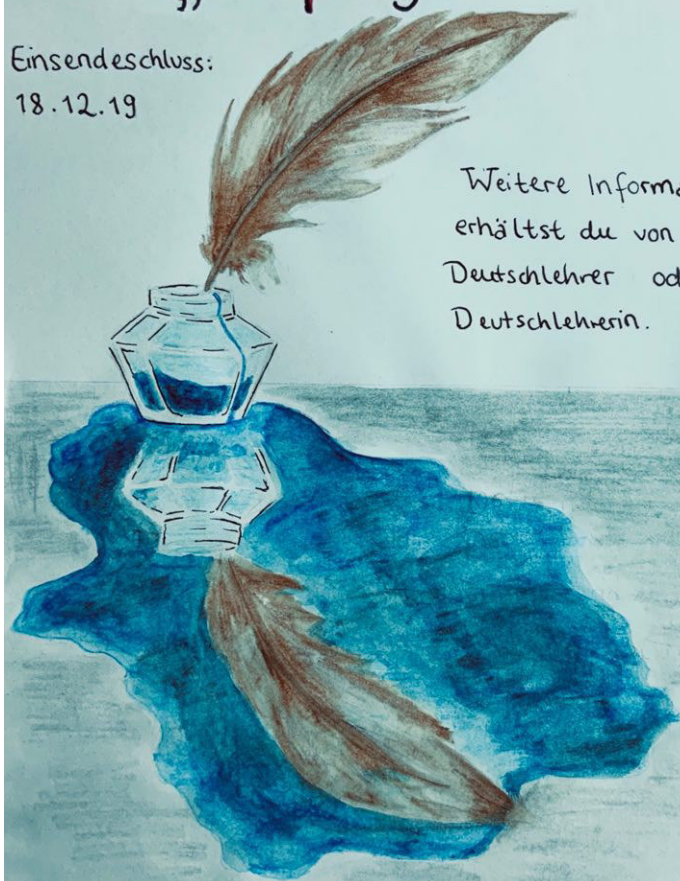 Einsendeschluss:
18.12.19
Weitere
erhältst du von
Deutschlehrer
Deutschlehrerin.